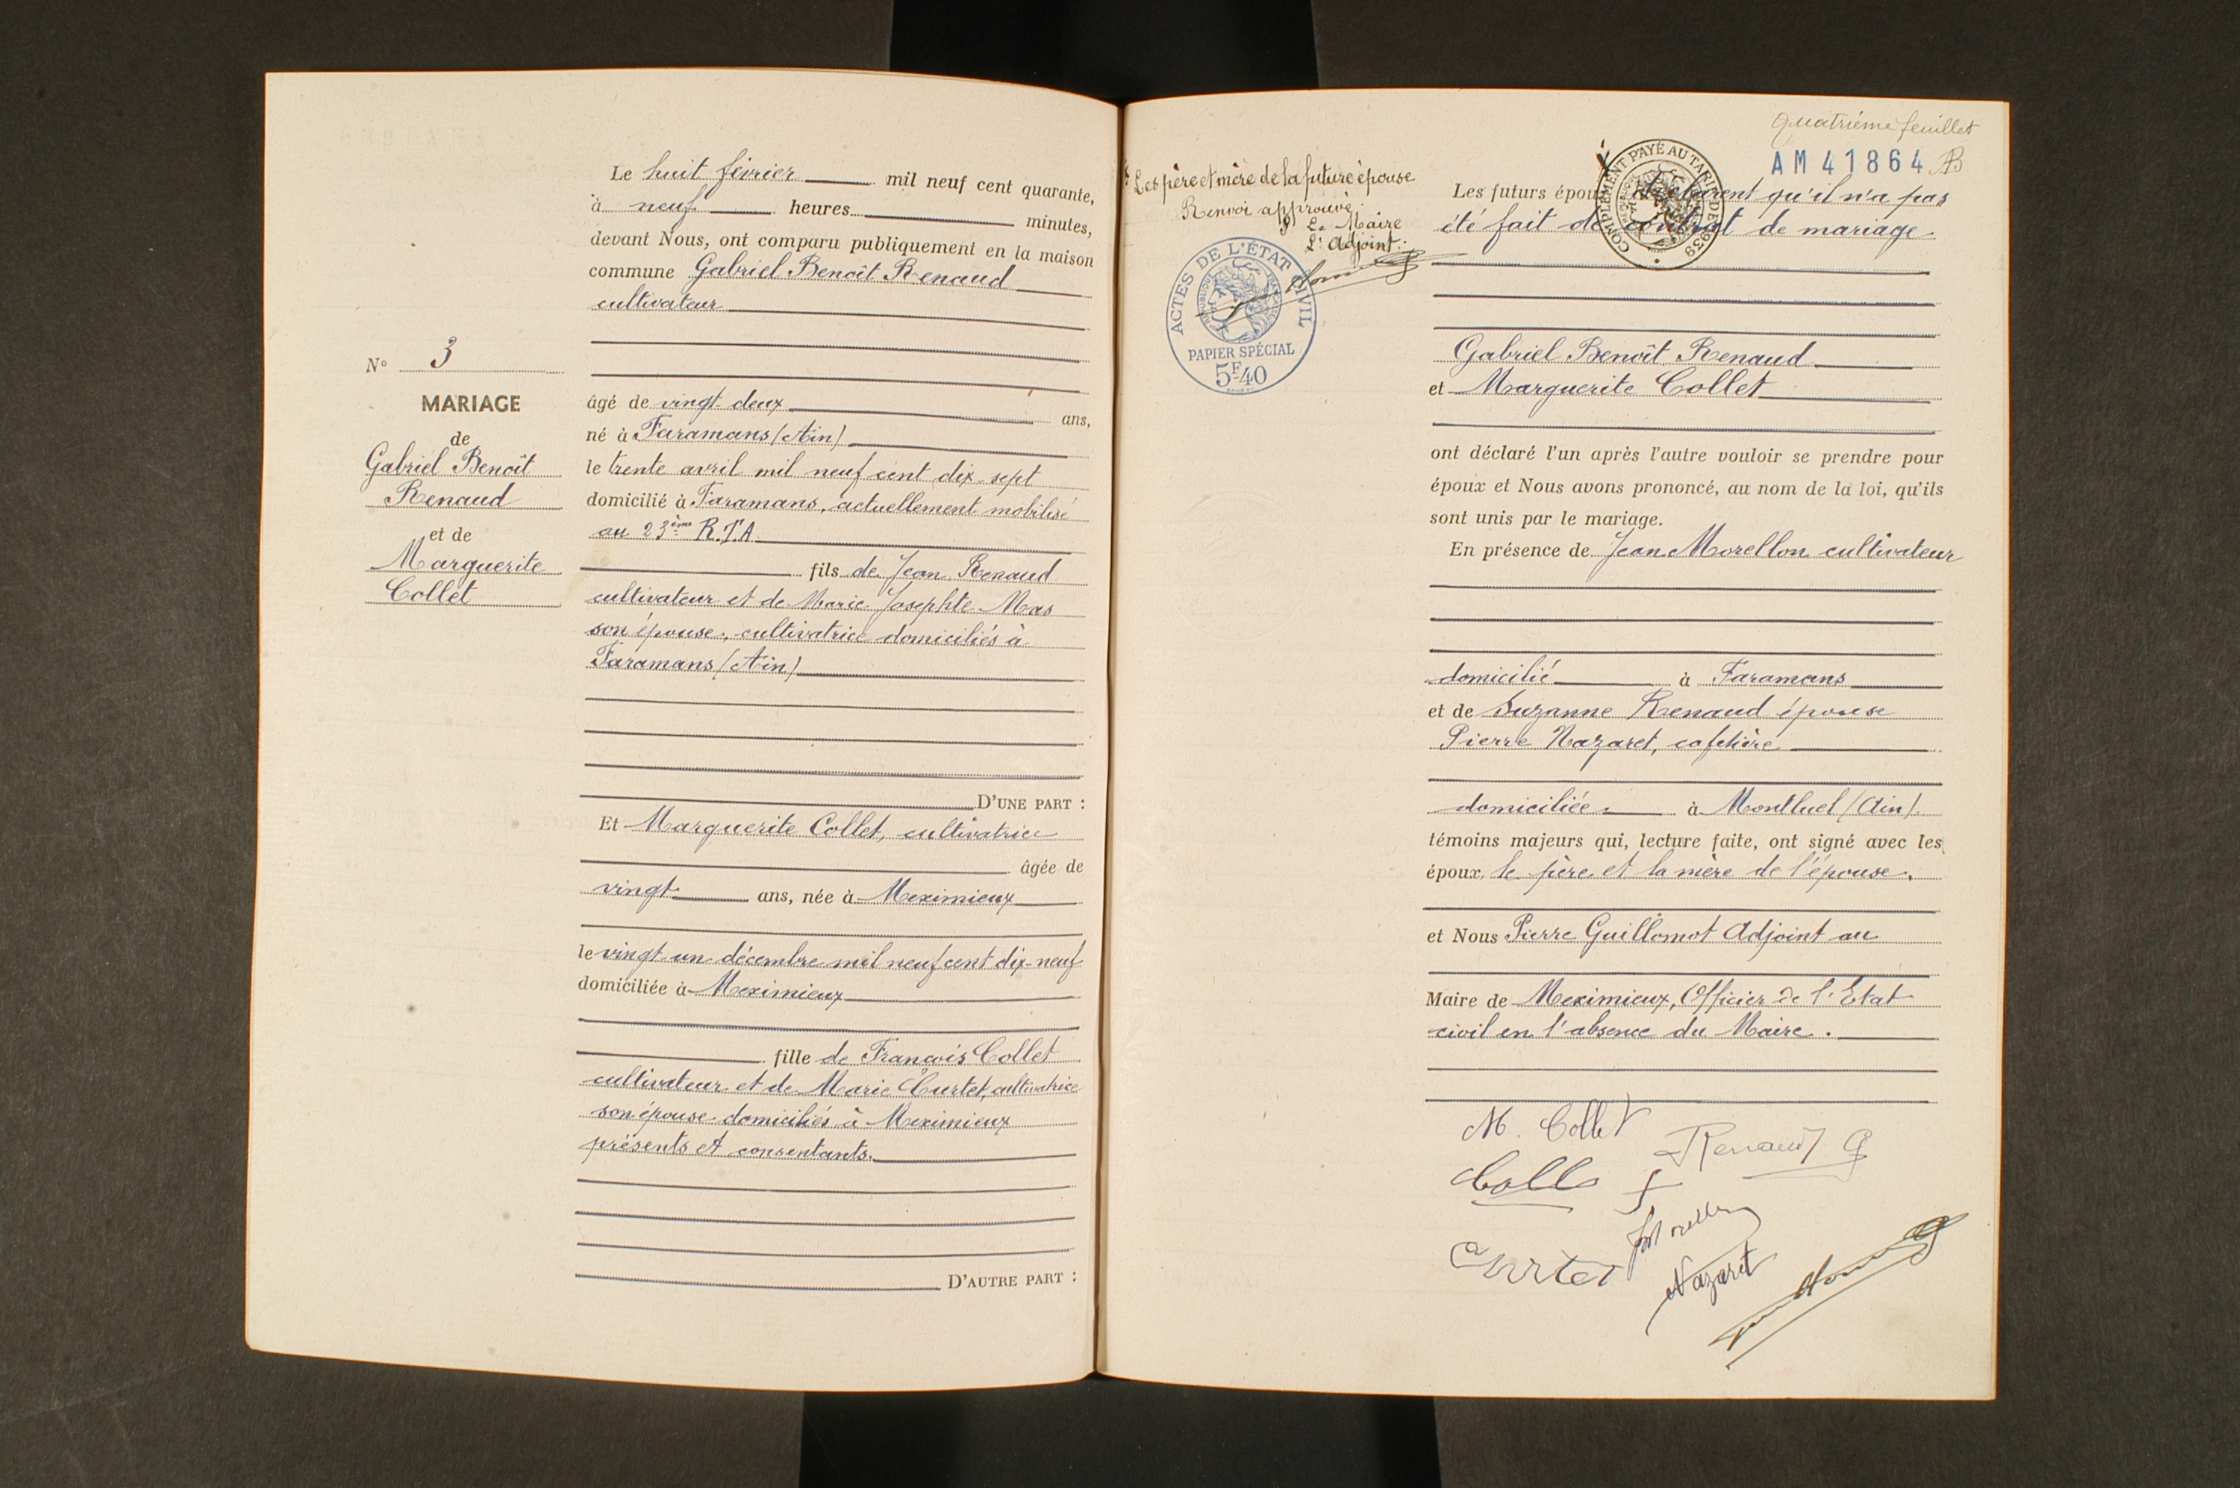 N° 3
MARIAGE
de
Gabriel Benoît
Renaud
et de
Marguerite
Collet
Le huit février mil neuf cent quarante,
à neuf heures minutes,
devant Nous, ont comparu publiquement en la maison
commune Gabriel Benoît Renaud
cultivateur
âgé de vingt-deux ans,
né à Faramans (Ain)
le trente avril mil neuf cent dix-sept
domicilié à Faramans, actuellement mobilisé
au 23ème R.T.A
fils de Jean Renaud
cultivateur et de Marie Josephte Mas
son épouse, cultivatrice domiciliés à
Faramans (Ain)
D'UNE PART :
Et Marguerite Collet, cultivatrice
âgée de
vingt ans, née à Meximieux
le vingt un décembre mil neuf cent dix-neuf
domiciliée à Meximieux
fille de François Collet
cultivateur et de Marie Curtet, cultivatrice
son épouse domiciliés à Meximieux
présents et consentants.
D'AUTRE PART :
Quatrième feuillet
AM 41864
Les père et mère de la future épouse
Renvoi approuvé.
Le Maire
L'Adjoint :
ACTES DE L'ÉTAT CIVIL
PAPIER SPÉCIAL
5F40
COMPLÉMENT PAYÉ AU TARIF DE 1939
Les futurs époux déclarent qu'il n'a pas
été fait de contrat de mariage.
Gabriel Benoît Renaud
et Marguerite Collet
ont déclaré l'un après l'autre vouloir se prendre pour
époux et Nous avons prononcé, au nom de la loi, qu'ils
sont unis par le mariage.
En présence de Jean Morellon cultivateur
domicilié à Faramans
et de Suzanne Renaud épouse
Pierre Nazaret, cafetière
domiciliée à Montluel (Ain)
témoins majeurs qui, lecture faite, ont signé avec les
époux, le père et la mère de l'épouse.
et Nous Pierre Guillomot Adjoint au
Maire de Meximieux, Officier de l'Etat
civil en l'absence du Maire.
M. Collet
Renaud G
Curtet
Nazaret